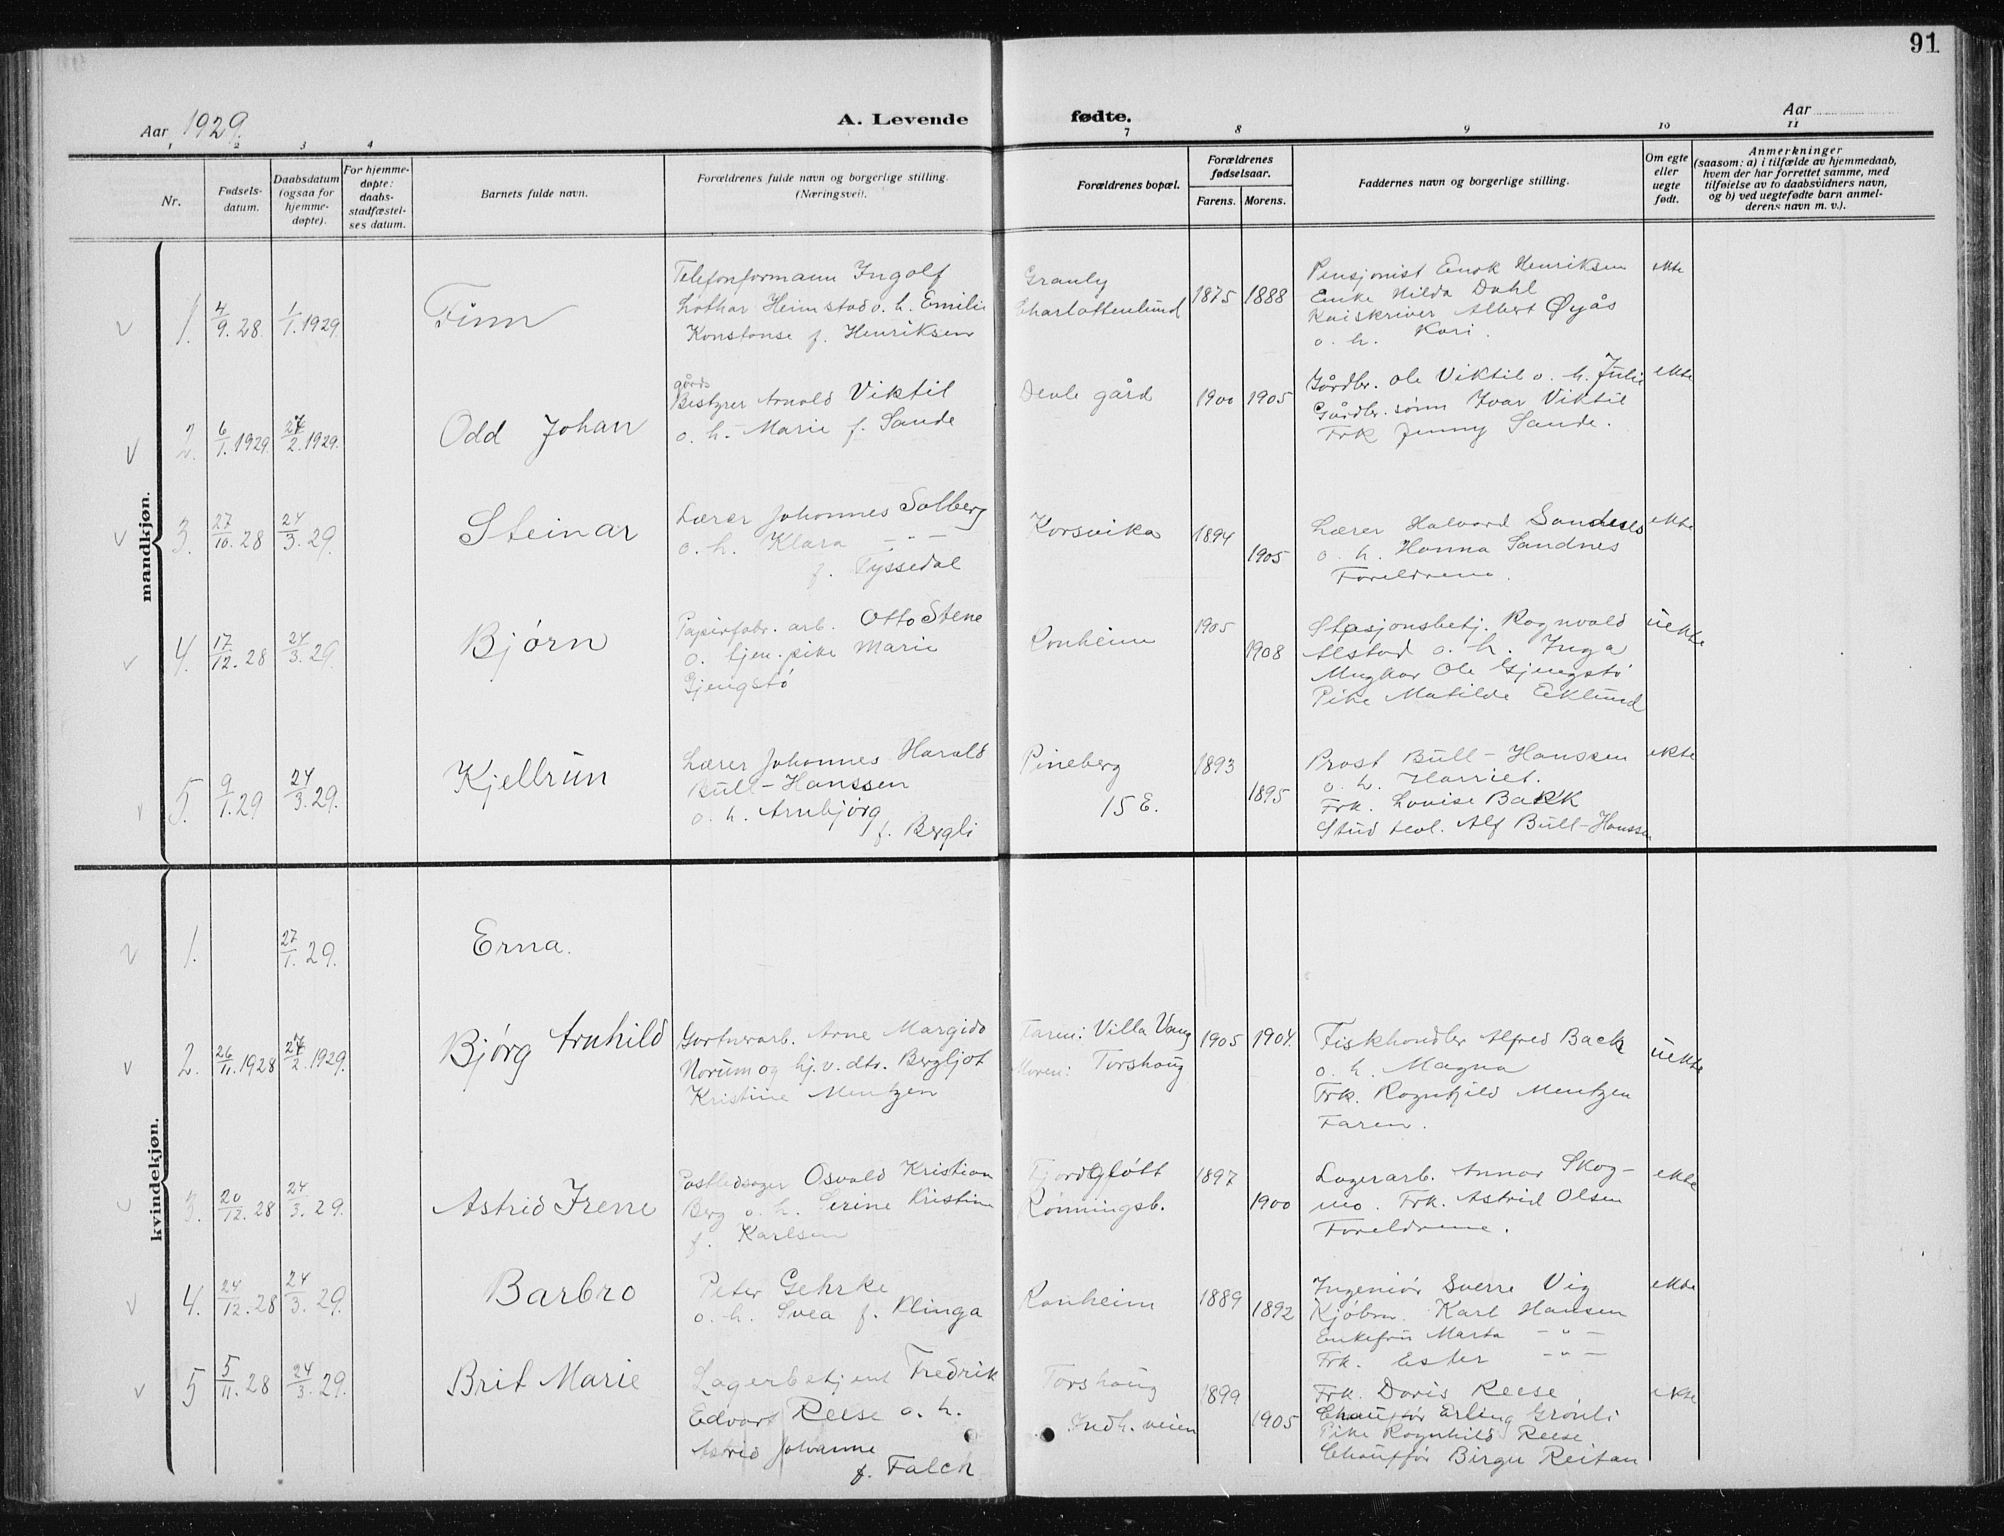 91
Aar 1929.
A. Levende fødte.
Aar
1 2 3 4 7 8 9 10 11
Nr.
Fødsels-
datum.
Daabsdatum
(ogsaa for
hjemme-
døpte).
For hjemme-
døpte:
daabs-
stadfæstel-
ses datum.
Barnets fulde navn.
Forældrenes fulde navn og borgerlige stilling.
(Næringsvei).
Forældrenes bopæl.
Forældrenes
fødselsaar.
Farens. Morens.
Faddernes navn og borgerlige stilling.
Om egte
eller
uegte
født.
Anmerkninger
(saasom: a) i tilfælde av hjemmedaab,
hvem der har forrettet samme, med
tilføielse av to daabsvidners navn,
og b) ved uegtefødte barn anmel-
derens navn m. v.).
mandkjøn.
1. 4/9. 28. 1/1. 1929. Finn
Telefonformann Ingolf
Lothar Heimstad o. h. Emilie
Konstanse f. Henriksen
Granly
Charlottenlund
1875 1888
Pensjonist Enok Henriksen
Enke Hilda Dahl
Kaiskriver Albert Øyås
o. h. Kari.
ekte
2. 6/1. 1929. 24/2. 1929. Odd Johan
gårds
Bestyrer Arnold Viktil
o. h. Marie f. Sande
Devle gård
1900 1905
Gårdbr. Ole Viktil o. h. Julie
Gårdbr. sønn Ivar Viktil
Frk Jenny Sande.
ekte
3. 27/10. 28 24/3. 29. Steinar
Lærer Johannes Solberg
o. h. Klara - " -
f. Tyssedal
Korsvika
1894
1905
Lærer Halvard Sandnes
o. h. Hanna Sandnes
Foreldrene.
ekte
4. 17/12. 28 24/3. 29. Bjørn
Papirfabr. arb. Otto Stene
o. tjen. pike Marie
Gjengstø
Ronheim
1905
1908
Stasjonsbetj. Ragnvald
Alstad o. h. Inga
Ungkar Ole Gjengstø
Pike Matilde Eklund
uekte
5. 9/1. 29 24/3. 29. Kjellrun
Lærer Johannes Harald
Bull-Hanssen
o. h. Arnbjørg
f. Bergli
Pineberg
15 E.
1893
1895
Prost Bull-Hanssen
o. h. Harriet.
Frk. Lovise Back
Stud teol. Alf Bull-Hanssen
ekte
kvindekjøn.
1. 27/1. 29. Erna.
2. 26/11. 1928 24/2. 1929. Bjørg Arnhild
Gartnerarb. Arne Margido
Norum og hj.v. dtr. Bergljot
Kristine Mentzen
Faren: Villa Vang
Moren: Torshaug
1905 1904.
Fiskhandler Alfred Back
o. h. Magna
Frk. Ragnhild Mentzen
Faren.
uekte
3. 20/12. 28 24/3. 29. Astrid Irene
Postledsager Osvald Kristian
Berg o. h. Serine Kristine
f. Karlsen
Fjordgløtt
Rønningsb.
1897
1900
Lagerarb. Annar Skog-
mo. Frk. Astrid Olsen
Foreldrene.
ekte
4. 24/12. 28 24/3. 29. Barbro
Peter Gehrke
o. h. Svea f. Klinga
Ronheim
1889
1892
Ingeniør Sverre Vig
Kjøbm. Karl Hansen
Enkefru Marta - " -
Frk. Ester - " -
ekte
5 5/11. 28 24/3. 29. Brit Marie
Lagerbetjent Fredrik
Edvart Reese o. h.
Astrid Johanne
f. Falck
Torshaug
Indh. veien
1899
1905
Frk. Doris Reese
Chauffør Erling Grønli
Pike Ragnhild Reese
Chauffør Birger Reitan
ekte